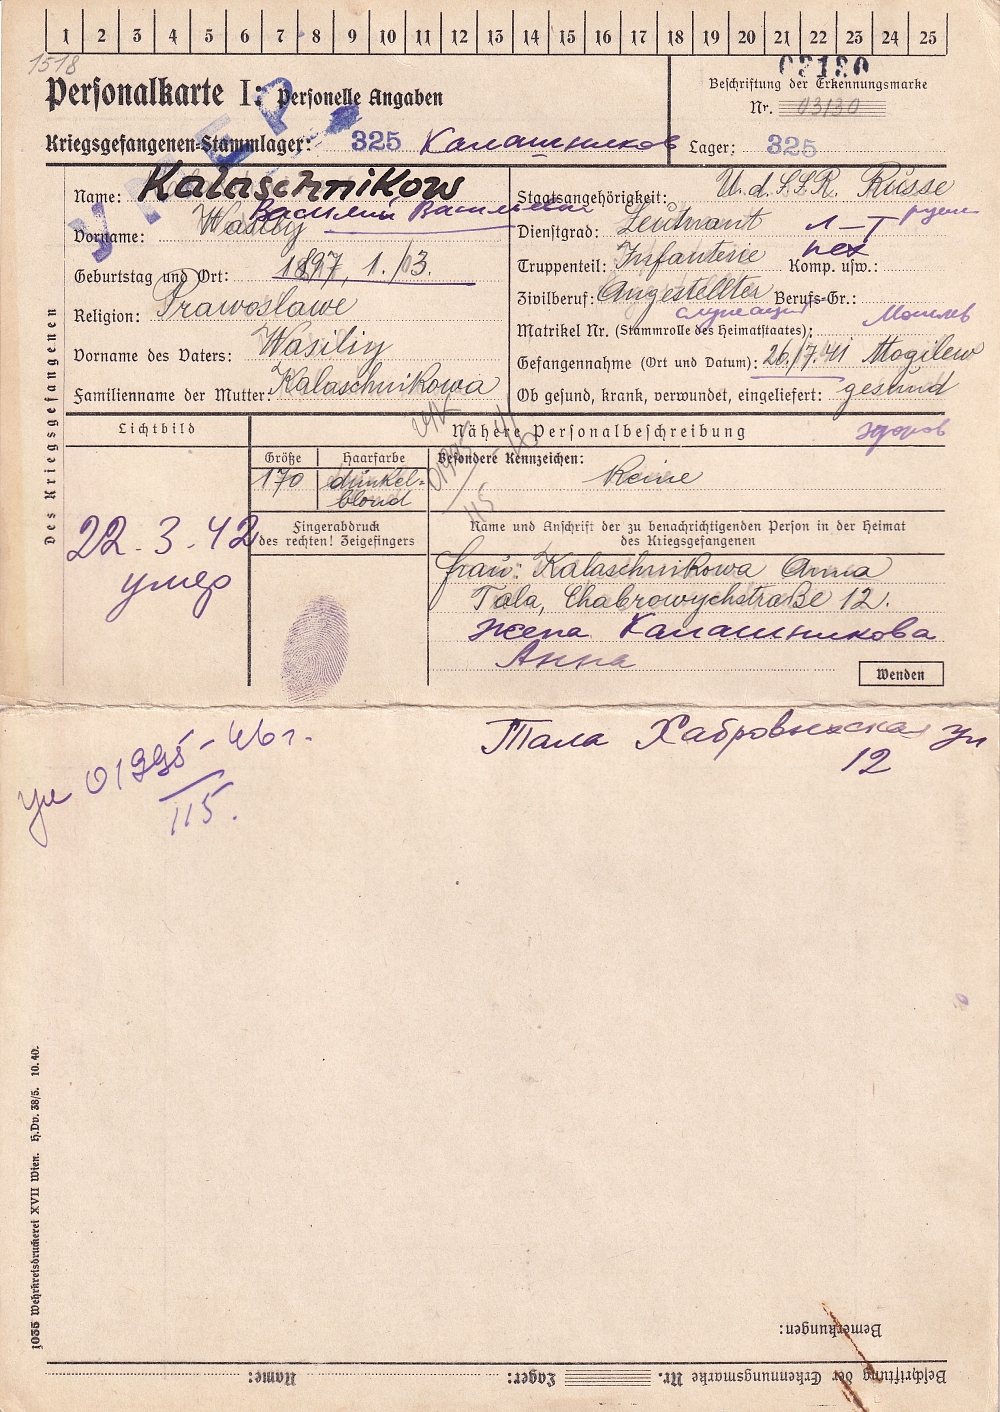 1 2 3 4 5 6 7 8 9 10 11 12 13 14 15 16 17 18 19 20 21 22 23 24 25
1518
Personalkarte I: Personelle Angaben
УМЕР
03130
Beschriftung der Erkennungsmarke
Nr. 03130
Kriegsgefangenen-Stammlager: 325 Калашников
Lager: 325
Des Kriegsgefangenen
Name: Kalaschnikow
Vorname: Wasiliy Василий Васильевич
Geburtstag und Ort: 1897, 1./03.
Religion: Prawoslawe
Vorname des Vaters: Wasiliy
Familienname der Mutter: Kalaschnikowa
Staatsangehörigkeit: U.d.S.S.R. Russe
русск
Dienstgrad: Leutnant Л-т
Truppenteil: Infanterie Komp. usw.: пех
Zivilberuf: Angestellter Berufs-Gr.:
служащий
Matrikel Nr. (Stammrolle des Heimatstaates): Могилев
Gefangennahme (Ort und Datum): 26./7.41 Mogilew
Ob gesund, krank, verwundet, eingeliefert: gesund
здоров
Lichtbild
Nähere Personalbeschreibung
Größe Haarfarbe Besondere Kennzeichen:
170 dunkel-
blond
Keine
115
Fingerabdruck
des rechten! Zeigefingers
Name und Anschrift der zu benachrichtigenden Person in der Heimat
des Kriegsgefangenen
22.3.42
умер
Frau: Kalaschnikowa Anna
Tala, Chabrowychstraße 12.
Жена Калашникова
Анна
Wenden
Тала Хабровыхская ул
12
ул 01995-46г.
115.
1035 Wehrkreisdruckerei XVII Wien. H.Dv. 38/5. 10.40.
Bemerkungen:
Name: Lager: Beschriftung der Erkennungsmarke Nr.